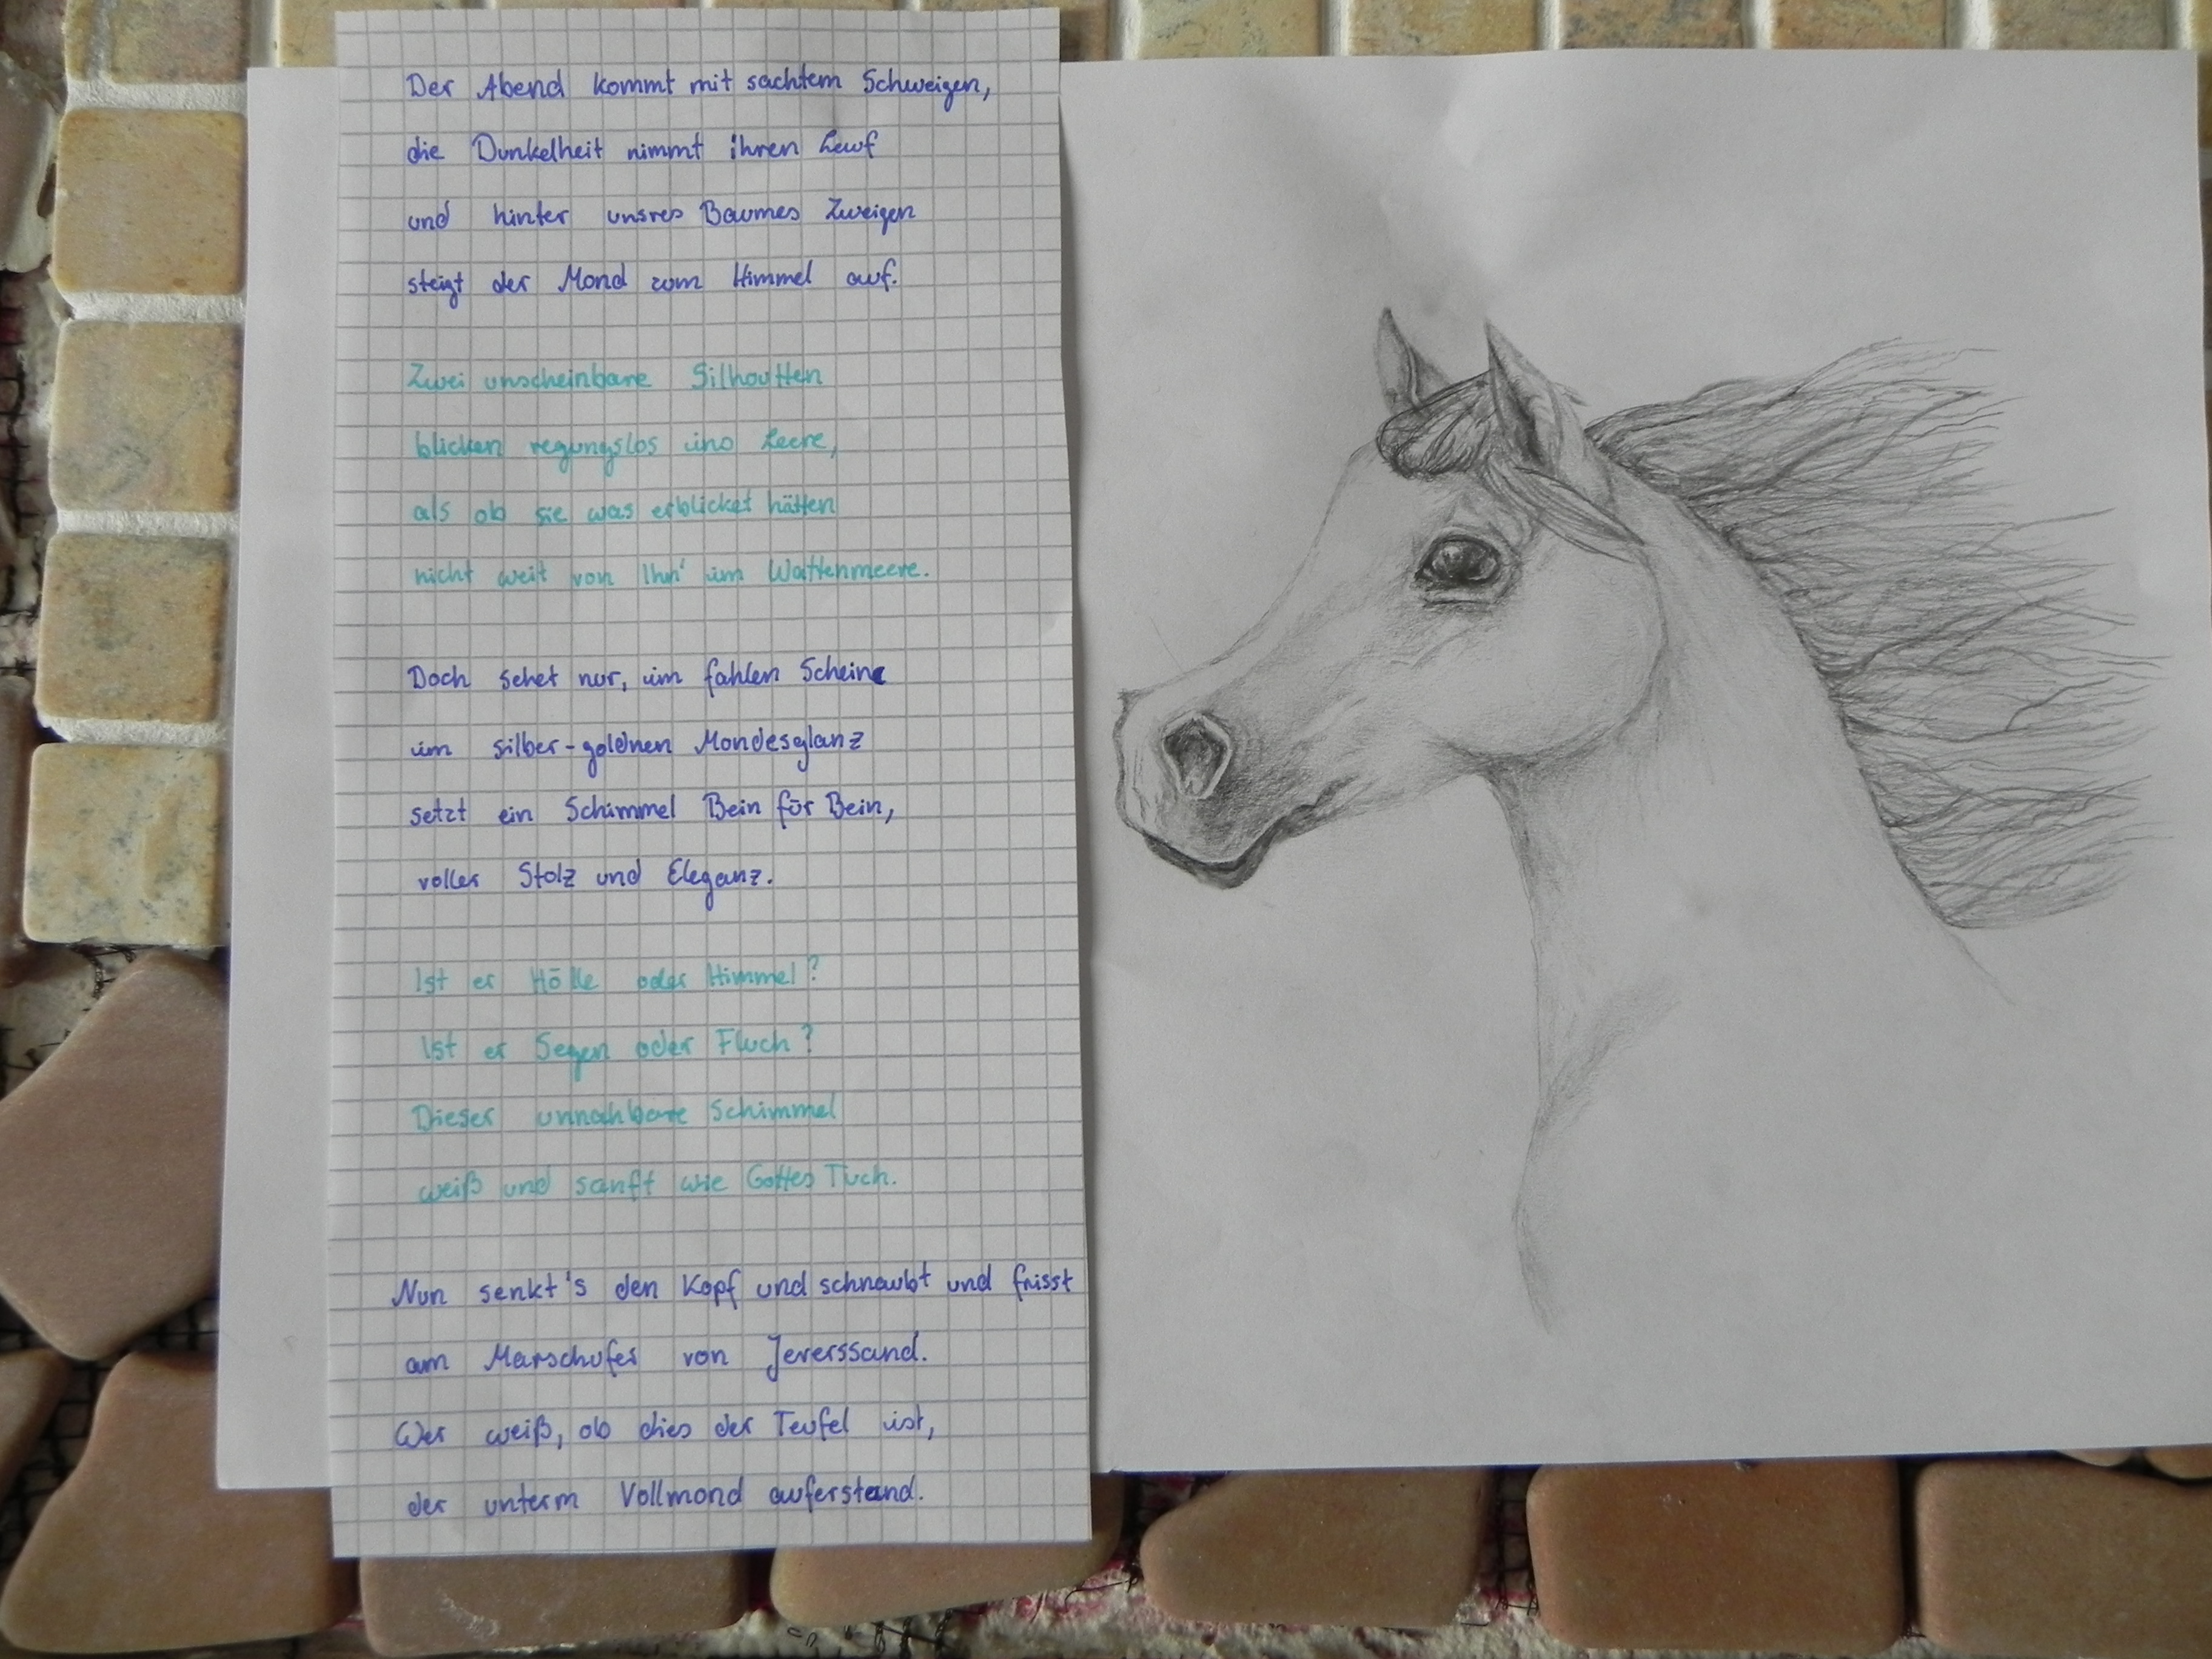 Der Abend kommt mit sachtem Schweigen,
die Dunkelheit nimmt ihren Lauf
und hinter unsres Baumes Zweigen
steigt der Mond zum Himmel auf.
Zwei unscheinbare Silhoutten
blicken regungslos ins Leere,
als ob sie was erblicket hätten
nicht weit von Ihn' im Wattenmeere.
Doch sehet nur, im fahlen Scheine
im silber-goldnen Mondesglanz
setzt ein Schimmel Bein für Bein,
voller Stolz und Eleganz.
Ist er Hölle oder Himmel?
Ist er Segen oder Fluch?
Dieser unnahbare Schimmel
weiß und sanft wie Gottes Tuch.
Nun senkt's den Kopf und schnaubt und frisst
am Marschufer von Jeverssand.
Wer weiß, ob dies der Teufel ist,
der unterm Vollmond auferstand.